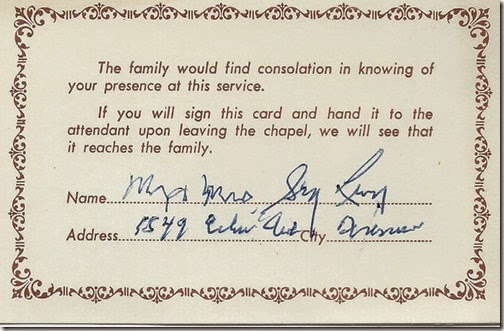 The family would find consolation in knowing of
your presence at this service.
If you will sign this card and hand it to the
attendant upon leaving the chapel, we will see that
it reaches the family.
Name Mr & Mrs Levy
Address 5549 City